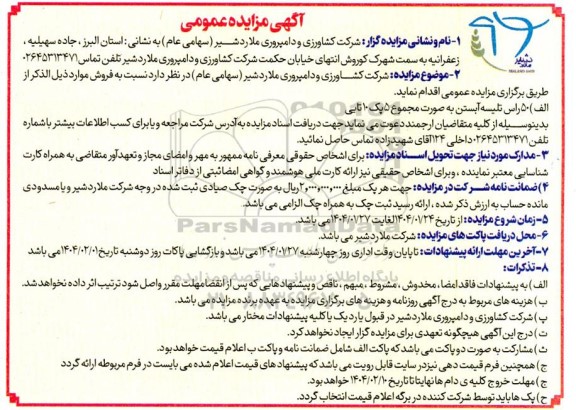 آگهی مزایده عمومی
۱- نام و نشانی مزایده گزار : شرکت کشاورزی و دامپروری ملارد شیر (سهامی عام) به نشانی : استان البرز ، جاده سهیلیه ،
زعفرانیه به سمت شهرک کوروش انتهای خیابان حکمت شرکت کشاورزی و دامپروری ملارد شیر تلفن تماس ۰۲۶۴۵۳۱۳۴۷۱
۲- موضوع مزایده : شرکت کشاورزی و دامپروری ملارد شیر (سهامی عام) در نظر دارد نسبت به فروش موارد ذیل الذکر از
طریق برگزاری مزایده عمومی اقدام نماید.
الف ) ۵۰ راس تلیسه آبستن به صورت مجموع ۵ پک ۱۰ تایی
بدینوسیله از کلیه متقاضیان ارجمند دعوت می نماید جهت دریافت اسناد مزایده به آدرس شرکت مراجعه و یا برای کسب اطلاعات بیشتر با شماره
تلفن ۰۲۶۴۵۳۱۳۴۷۱ داخلی ۱۲۴ آقای شهیدزاده تماس حاصل نمایند.
۳- مدارک مورد نیاز جهت تحویل اسناد مزایده : برای اشخاص حقوقی معرفی نامه ممهور به مهر و امضای مجاز و تعهدآور متقاضی به همراه کارت
شناسایی معتبر نماینده ، و برای اشخاص حقیقی نیز ارائه کارت ملی هوشمند و گواهی امضائیتی از دفاتر اسناد
۴) ضمانت نامه شرکت در مزایده : جهت هر پک مبلغ ۲,۰۰۰,۰۰۰,۰۰۰ ریال به صورت چک صیادی ثبت شده در وجه شرکت ملارد شیر و یا مسدودی
مانده حساب به ارزش ذکر شده ، ارائه رسید ثبت چک به همراه چک الزامی می باشد.
۵- زمان شروع مزایده : از تاریخ ۱۴۰۴/۰۱/۲۴ لغایت ۱۴۰۴/۰۱/۲۷ می باشد.
۶- محل دریافت پاکت های مزایده : شرکت ملارد شیر می باشد.
۷- آخرین مهلت ارائه پیشنهادات : تا پایان وقت اداری روز چهارشنبه ۱۴۰۴/۰۱/۲۷ می باشد و بازگشایی پاکات روز دوشنبه تاریخ ۱۴۰۴/۰۲/۰۱ می باشد
۸- تذکرات :
الف ) به پیشنهادات فاقد امضا ، مخدوش ، مشروط ، مبهم ، ناقص و پیشنهادهایی که پس از انقضا مهلت مقرر واصل شود ترتیب اثر داده نخواهد شد.
ب ) هزینه های مربوط به درج آگهی روزنامه و هزینه های برگزاری مزایده به عهده برنده مزایده می باشد.
پ ) شرکت کشاورزی و دامپروری ملارد شیر در قبول یا رد یک یا کلیه پیشنهادات مختار می باشد.
ت ) درج این آگهی هیچگونه تعهدی برای مزایده گزار ایجاد نخواهد کرد.
ث ) مشارکت به صورت دو پاکت می باشد که پاکت الف شامل ضمانت نامه و پاکت ب اعلام قیمت خواهد بود.
ج ) همچنین فرم قیمت دهی نیز در سایت قابل رویت می باشد که پیشنهاد های قیمت اعلام شده می بایست در فرم مربوطه ارائه گردد
چ ) مهلت خروج کلیه ی دام ها نهایتا تا تاریخ ۱۴۰۴/۰۲/۱۰ خواهد بود.
ح ) پک ها باید توسط شرکت کننده در برگه اعلام قیمت انتخاب گردد.